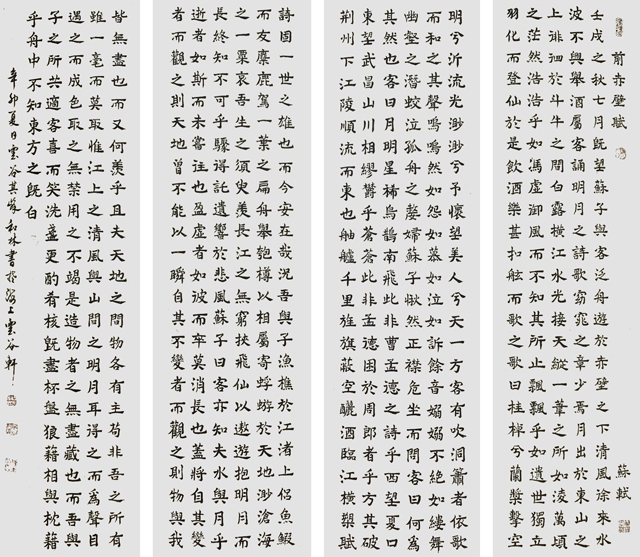 前赤壁賦 蘇軾
壬戌之秋七月既望蘇子與客泛舟遊於赤壁之下清風徐來水
波不興舉酒屬客誦明月之詩歌窈窕之章少焉月出於東山之
上徘徊於斗牛之間白露橫江水光接天縱一葦之所如凌萬頃
之茫然浩浩乎如馮虛御風而不知其所止飄飄乎如遺世獨立
羽化而登仙於是飲酒樂甚扣舷而歌之歌曰桂棹兮蘭槳擊空
明兮泝流光渺渺兮予懷望美人兮天一方客有吹洞簫者依歌
而和之其聲嗚嗚然如怨如慕如泣如訴餘音嫋嫋不絕如縷舞
幽壑之潛蛟泣孤舟之嫠婦蘇子愀然正襟危坐而問客曰何為
其然也客曰月明星稀烏鵲南飛此非曹孟德之詩乎西望夏口
東望武昌山川相繆鬱乎蒼蒼此非孟德困於周郎者乎方其破
荊州下江陵順流而東也舳艫千里旌旗蔽空釃酒臨江橫槊賦
詩固一世之雄也而今安在哉況吾與子漁樵於江渚上侶魚鰕
而友麋鹿駕一葉之扁舟舉匏樽以相屬寄蜉蝣於天地渺滄海
之一粟哀吾生之須臾羨長江之無窮挾飛仙以遨遊抱明月而
長終知不可乎驟得託遺響於悲風蘇子曰客亦知夫水與月乎
逝者如斯而未嘗往也盈虛者如彼而卒莫消長也蓋將自其變
者而觀之則天地曾不能以一瞬自其不變者而觀之則物與我
皆無盡也而又何羨乎且夫天地之間物各有主苟非吾之所有
雖一毫而莫取惟江上之清風與山間之明月耳得之而為聲目
遇之而成色取之無禁用之不竭是造物者之無盡藏也而吾與
子之所共適客喜而笑洗盞更酌肴核既盡杯盤狼藉相與枕藉
乎舟中不知東方之既白
辛卯夏日雲谷 和林書於海上雲谷軒